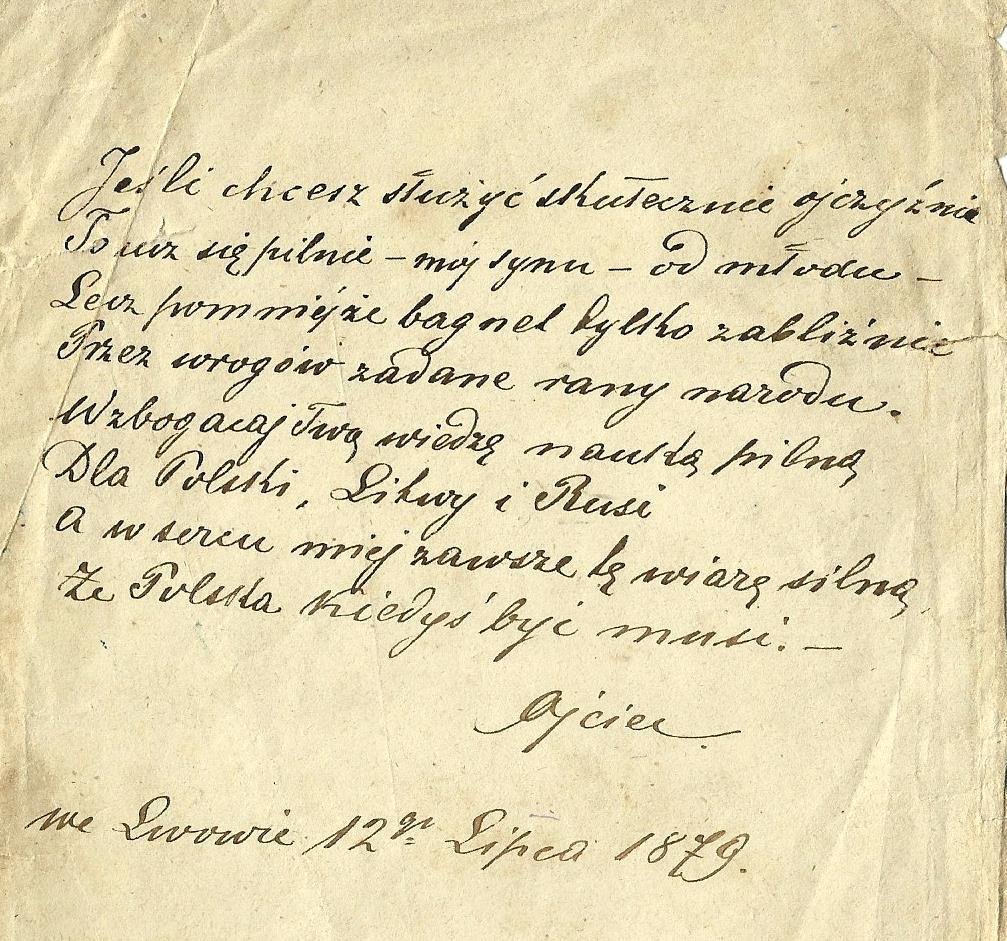 Jeśli chcesz służyć skutecznie ojczyźnie
To ucz się pilnie – mój synu – od młodu –
Lecz pomnijże bagnet tylko zabliźnie
Przez wrogów zadane rany narodu.
Wzbogacaj Twą wiedzę nauką pilną
Dla Polski, Litwy i Rusi
A w sercu miej zawsze tę wiarę silną,
Że Polska kiedyś być musi. –
Ojciec.
we Lwowie 12go Lipca 1879.